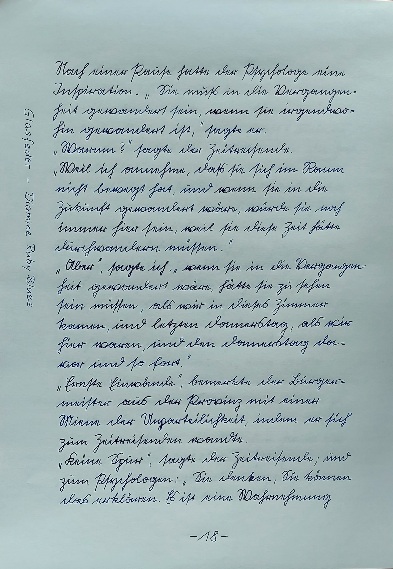 Nach einer Pause hatte der Psychologe eine
Inspiration. „Sie muß in die Vergangen-
heit gewandert sein, wenn sie irgendwo-
hin gewandert ist," sagte er.
„Warum?" sagte der Zeitreisende.
„Weil ich annehme, daß sie sich im Raum
nicht bewegt hat, und wenn sie in die
Zukunft gewandert wäre, würde sie noch
immer hier sein, weil sie diese Zeit hätte
durchwandern müssen."
„Aber", sagte ich, „wenn sie in die Vergangen-
heit gewandert wäre, hätte sie zu sehen
sein müssen, als wir in dieses Zimmer
kamen, und letzten Donnerstag, als wir
hier waren, und den Donnerstag da-
vor und so fort."
„Ernste Einwände", bemerkte der Bürger-
meister aus der Provinz mit einer
Miene der Unparteilichkeit, indem er sich
zum Zeitreisenden wandte.
„Keine Spur", sagte der Zeitreisende; und
zum Psychologen: „Sie denken, Sie können
das erklären. Es ist eine Wahrnehmung
-18-
Glasfeder -